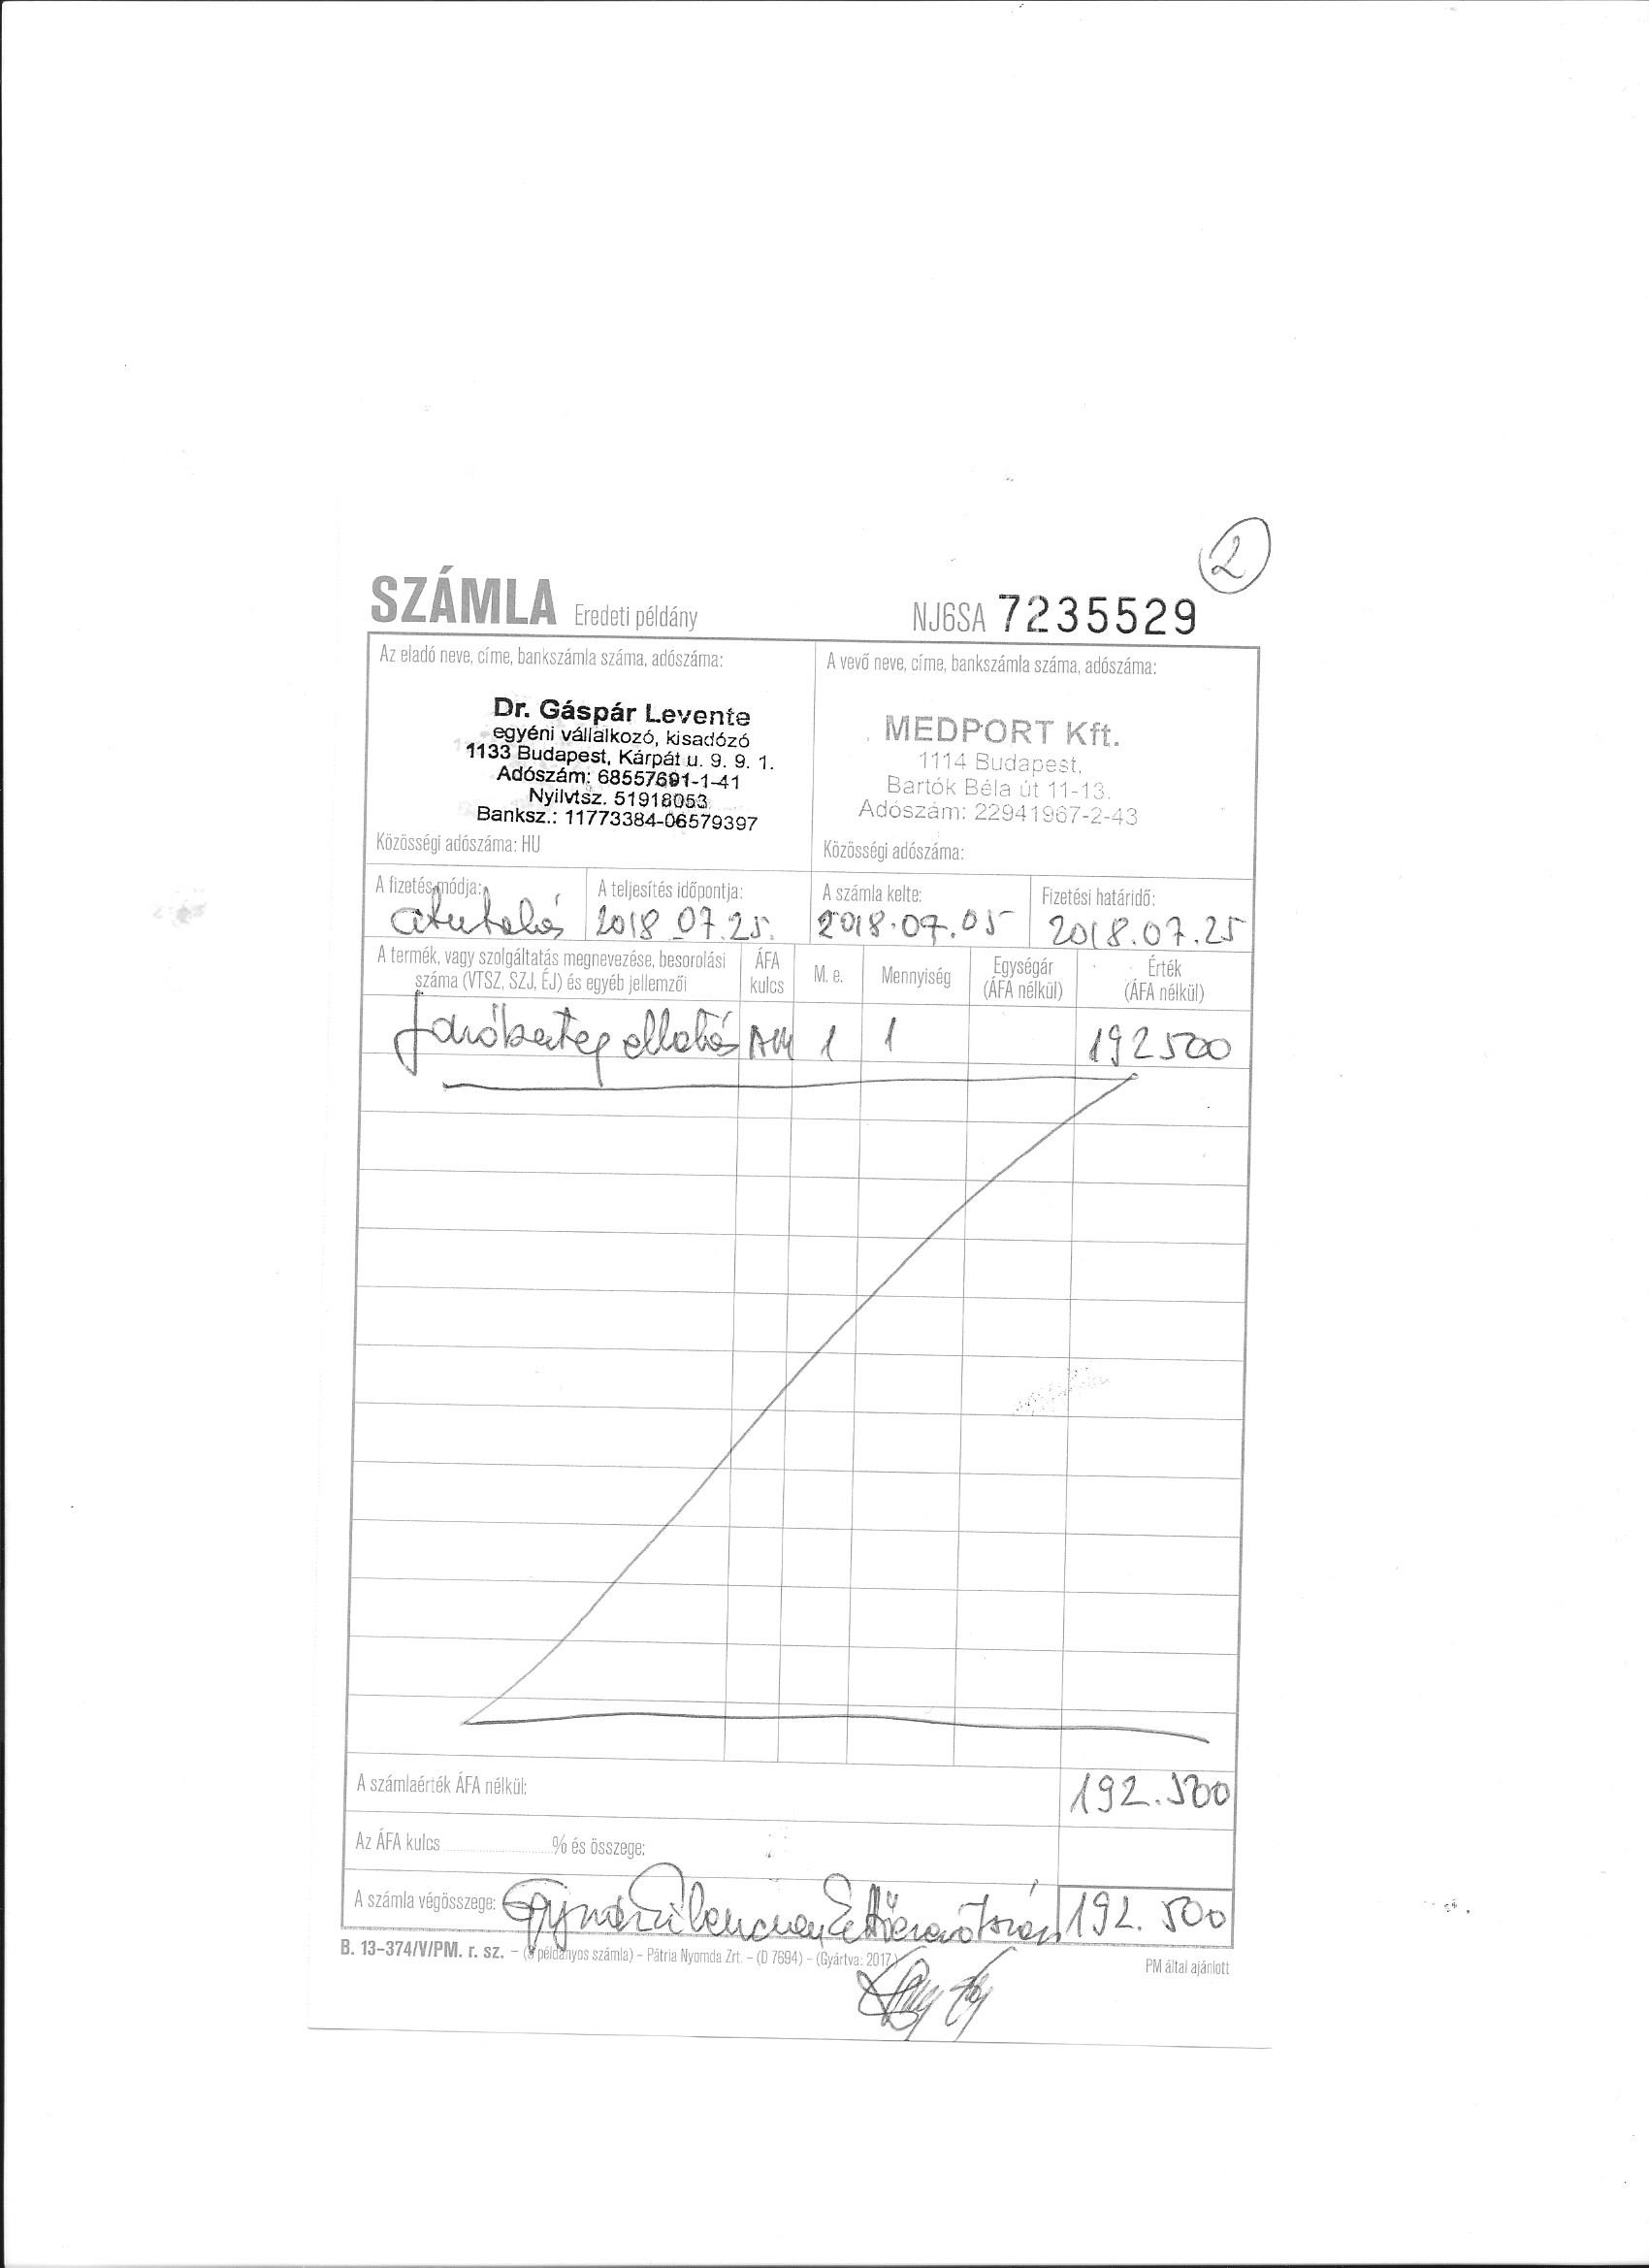 2
SZÁMLA Eredeti példány NJ6SA 7235529
Az eladó neve, címe, bankszámla száma, adószáma:
Dr. Gáspár Levente
egyéni vállalkozó, kisadózó
1133 Budapest, Kárpát u. 9. 9. 1.
Adószám: 68557691-1-41
Nyilvtsz. 51918053
Banksz.: 11773384-06579397
Közösségi adószáma: HU
A vevő neve, címe, bankszámla száma, adószáma:
MEDPORT Kft.
1114 Budapest,
Bartók Béla út 11-13.
Adószám: 22941967-2-43
Közösségi adószáma:
A fizetés módja: A teljesítés időpontja: A számla kelte: Fizetési határidő:
átutalás 2018.07.25. 2018.07.05 2018.07.25
A termék, vagy szolgáltatás megnevezése, besorolási száma (VTSZ, SZJ, ÉJ) és egyéb jellemzői ÁFA kulcs M. e. Mennyiség Egységár (ÁFA nélkül) Érték (ÁFA nélkül)
járóbeteg ellátás 1 1 192500
A számlaérték ÁFA nélkül: 192.500
Az ÁFA kulcs ........ % és összege:
A számla végösszege: 192.500
B. 13-374/V/PM. r. sz. – példányos számla) – Pátria Nyomda Zrt. – (D 7694) – (Gyártva: 2017.)
PM által ajánlott